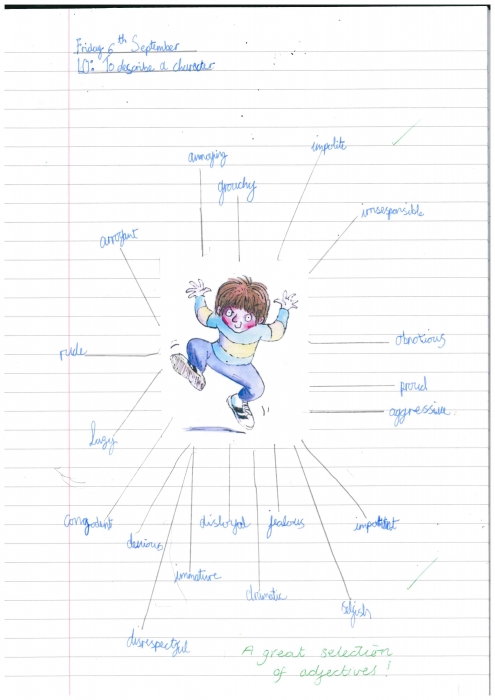 Friday 6th September
LO: To describe a character
annoying
impolite
grouchy
irresponsible
arrogant
obnotious
rude
proud
aggressive
lazy
disloyal
jealous
devious
immature
dramatic
selfish
disrespectful
A great selection
of adjectives!